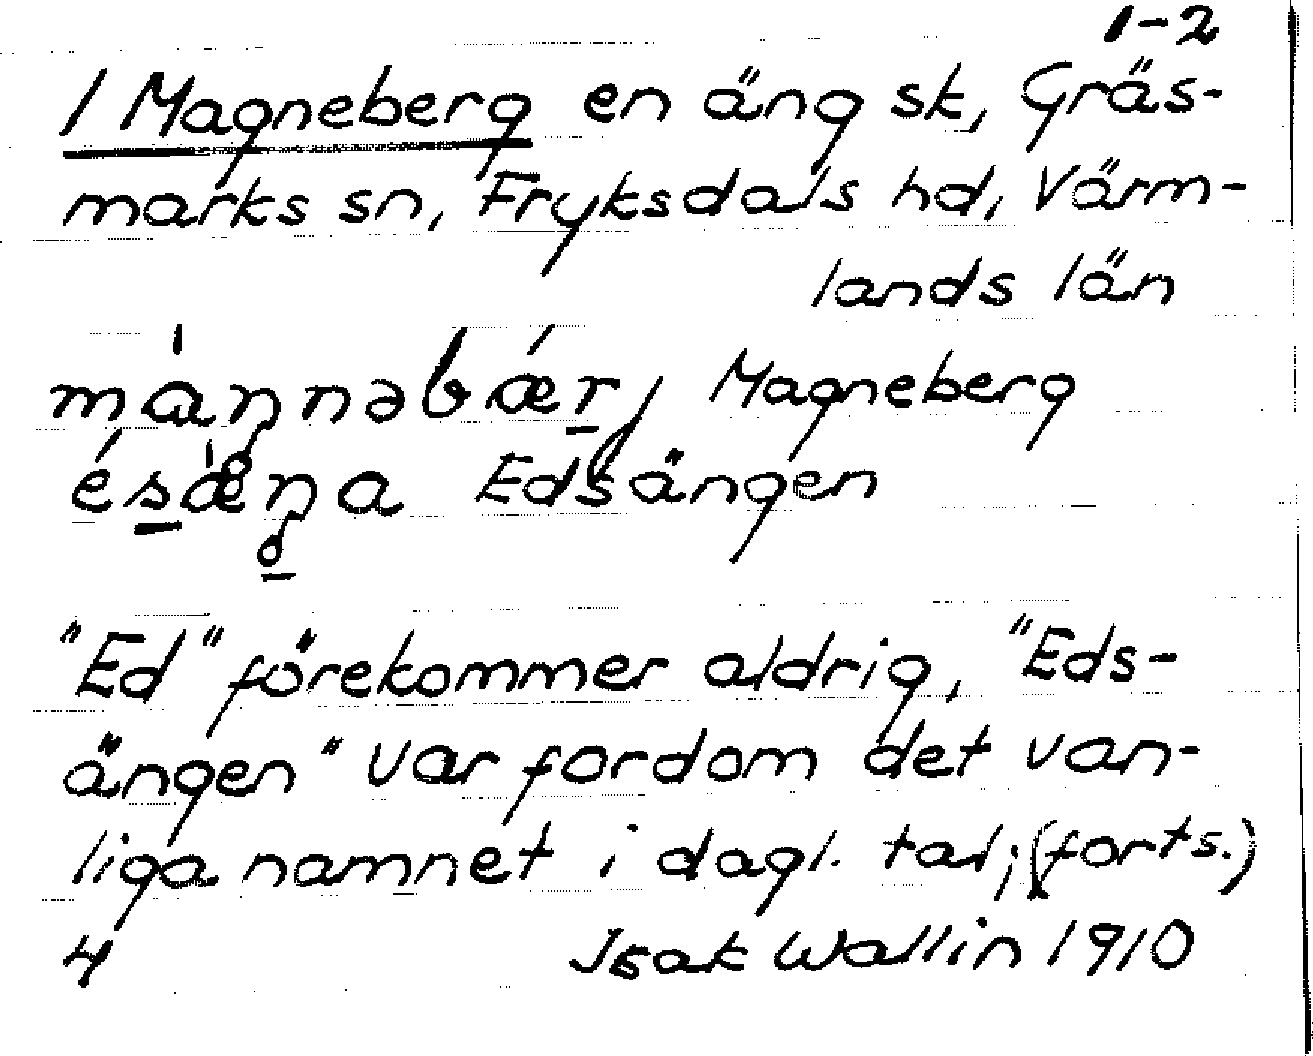 1-2
1 Magneberg en äng sk, Gräs-
marks sn, Fryksdals hd, Värm-
lands län
máŋnəbǽr, Magneberg
ésǽŋa Edsängen
"Ed" förekommer aldrig, "Eds-
ängen" var fordom det van-
liga namnet i dagl. tal; (forts.)
4 Isak Wallin 1910